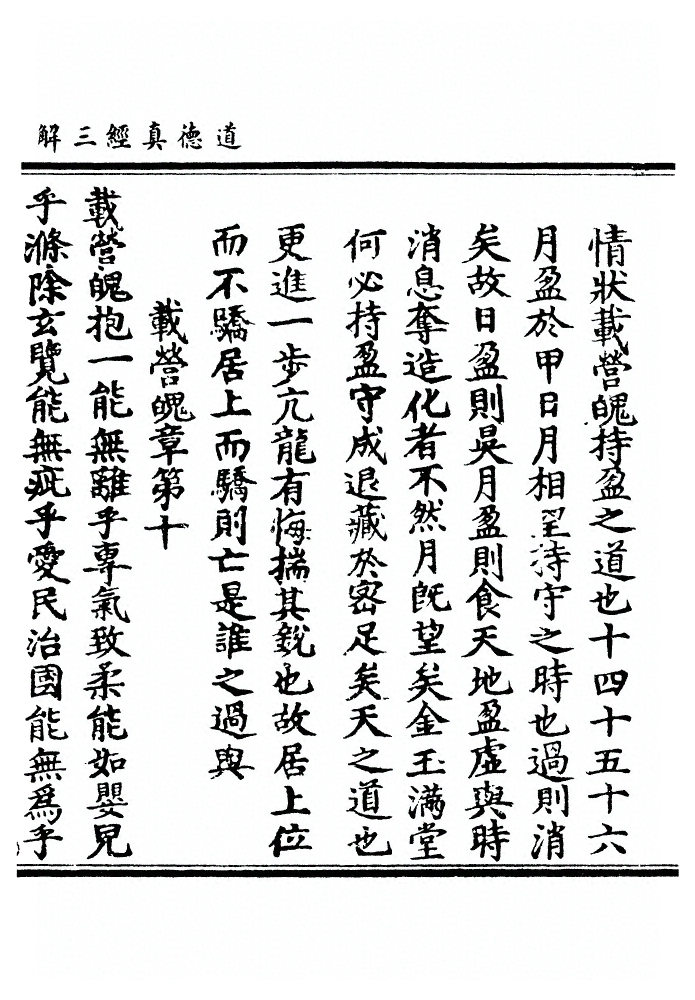 道德真經三解
情狀載營魄持盈之道也十四十五十六
月盈於甲日月相望持守之時也過則消
矣故日盈則昃月盈則食天地盈虛與時
消息奪造化者不然月既望矣金玉滿堂
何必持盈守成退藏於密足矣天之道也
更進一步亢龍有悔揣其銳也故居上位
而不驕居上而驕則亡是誰之過與
載營魄章第十
載營魄抱一能無離乎專氣致柔能如嬰兒
乎滌除玄覽能無疵乎愛民治國能無為乎